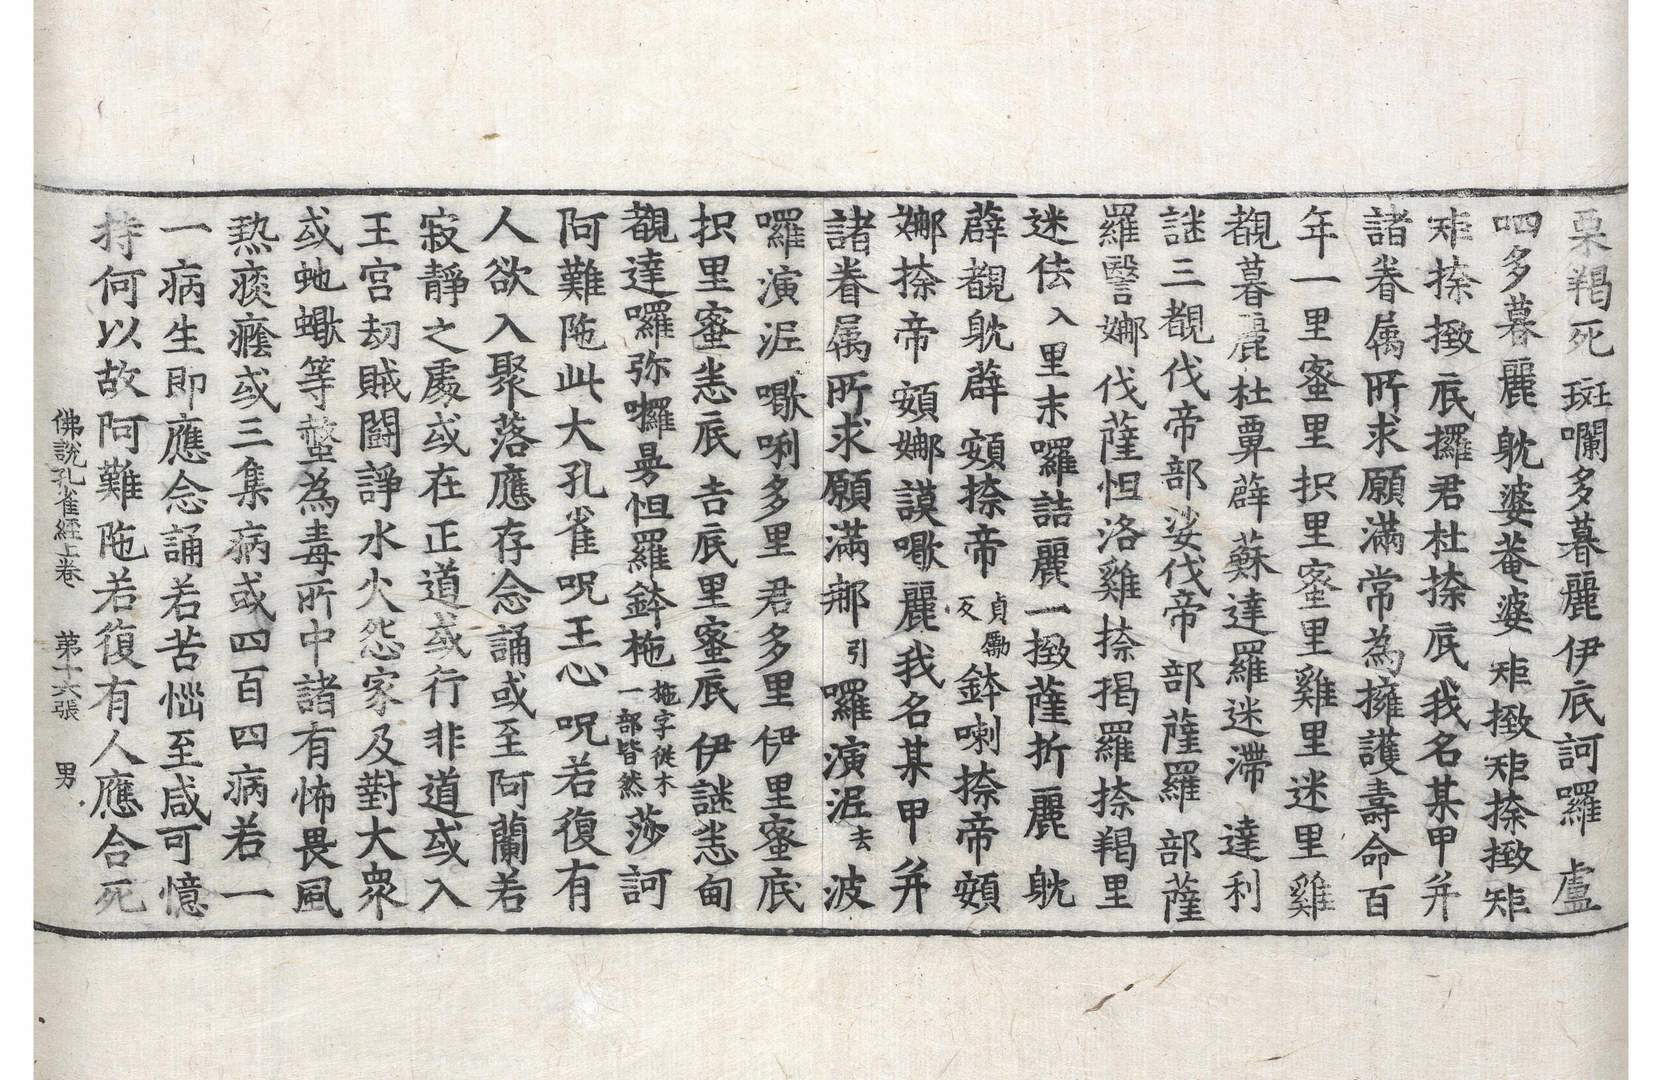 栗羯死 斑囒多暮麗伊底訶囉 盧
呬多暮麗躭婆菴婆 矩撴矩捺撴矩
矩捺撴底攞君杜捺底我名某甲并
諸眷属所求願滿常為擁護壽命百
年一里蜜里抧里蜜里雞里迷里雞
羅醫娜伐薩怛洛雞捺揭羅捺羯里
謎三覩伐帝部娑伐帝 部薩羅 部薩
覩暮麗杜覃薜蘇達羅迷滯 達利
迷佉入里末囉詰麗一撴薩折麗 躭
薜覩躭薜 頞捺帝 貞勵反 鉢喇捺帝頞
娜捺帝 頞娜謨㘓麗我名某甲并
諸眷属所求願滿 那引囉演泥去波
囉演泥㘓唎多里 君多里伊里蜜底
抧里蜜恙底 吉底里蜜底 伊謎恙甸
覩達囉弥囉曼怛羅鉢柂 拖字從木一部皆然 莎訶
阿難陁此大孔雀呪王心 呪若復有
人欲入聚落應存念誦或至阿蘭若
寂靜之處或在正道或行非道或入
王宮刧賊鬪諍水火怨家及對大眾
或虵蠍等螫為毒所中諸有怖畏風
熱痰癊或三集病或四百四病若一
一病生即應念誦若苦惱至咸可憶
持何以故阿難陁若復有人應合死
佛說孔雀經上卷 第十六張 男